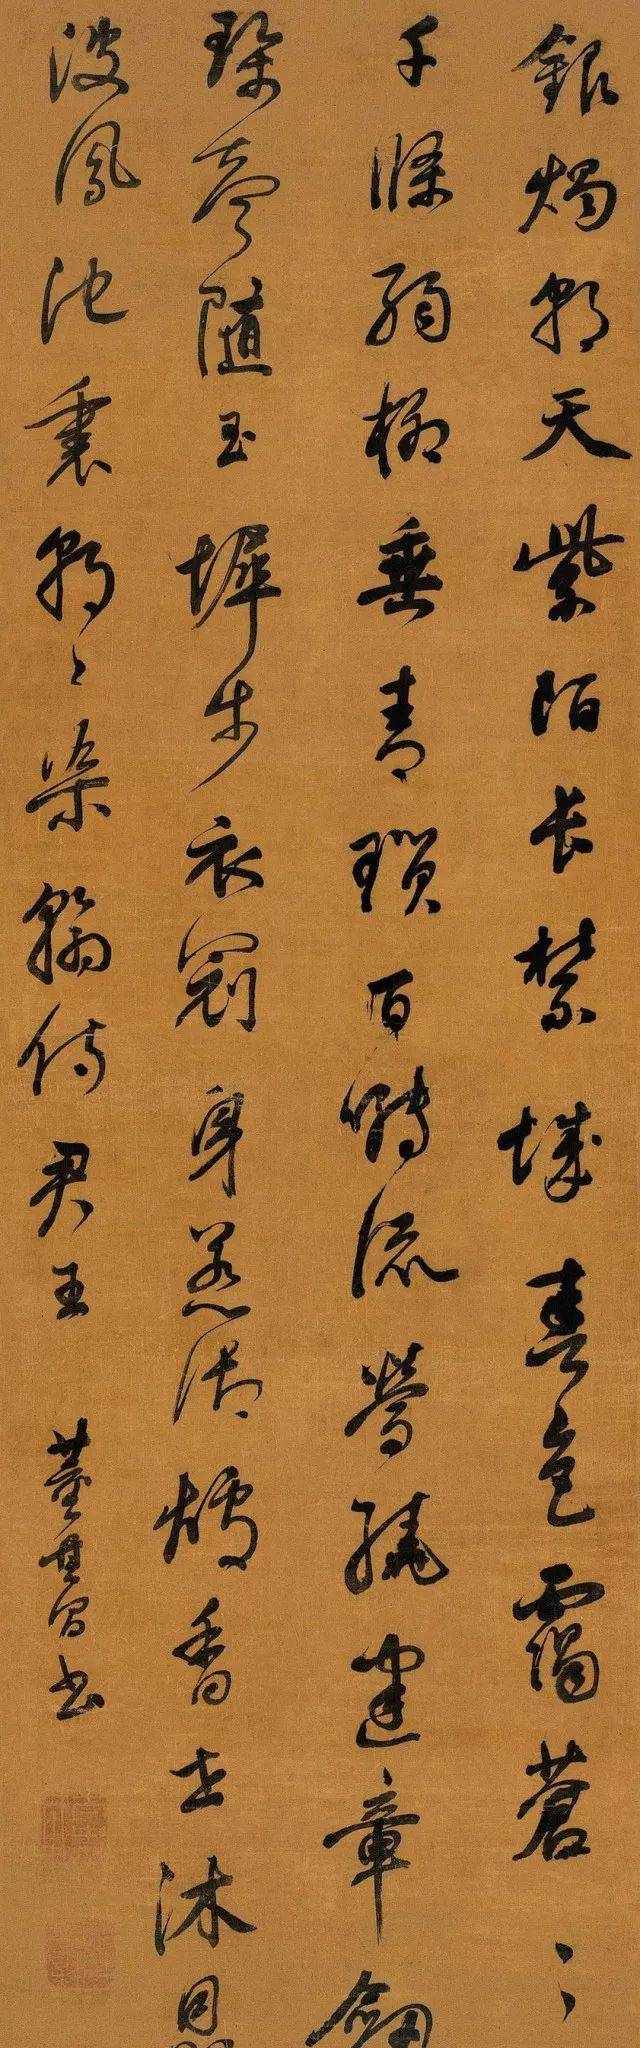 銀燭朝天紫陌長禁城春色靄蒼〻
千條弱柳垂青瑣百囀流鶯繞建章劍
珮聲隨玉墀步衣冠身惹御爐香共沐恩
波鳳池裏朝〻染翰侍君王
董其昌書